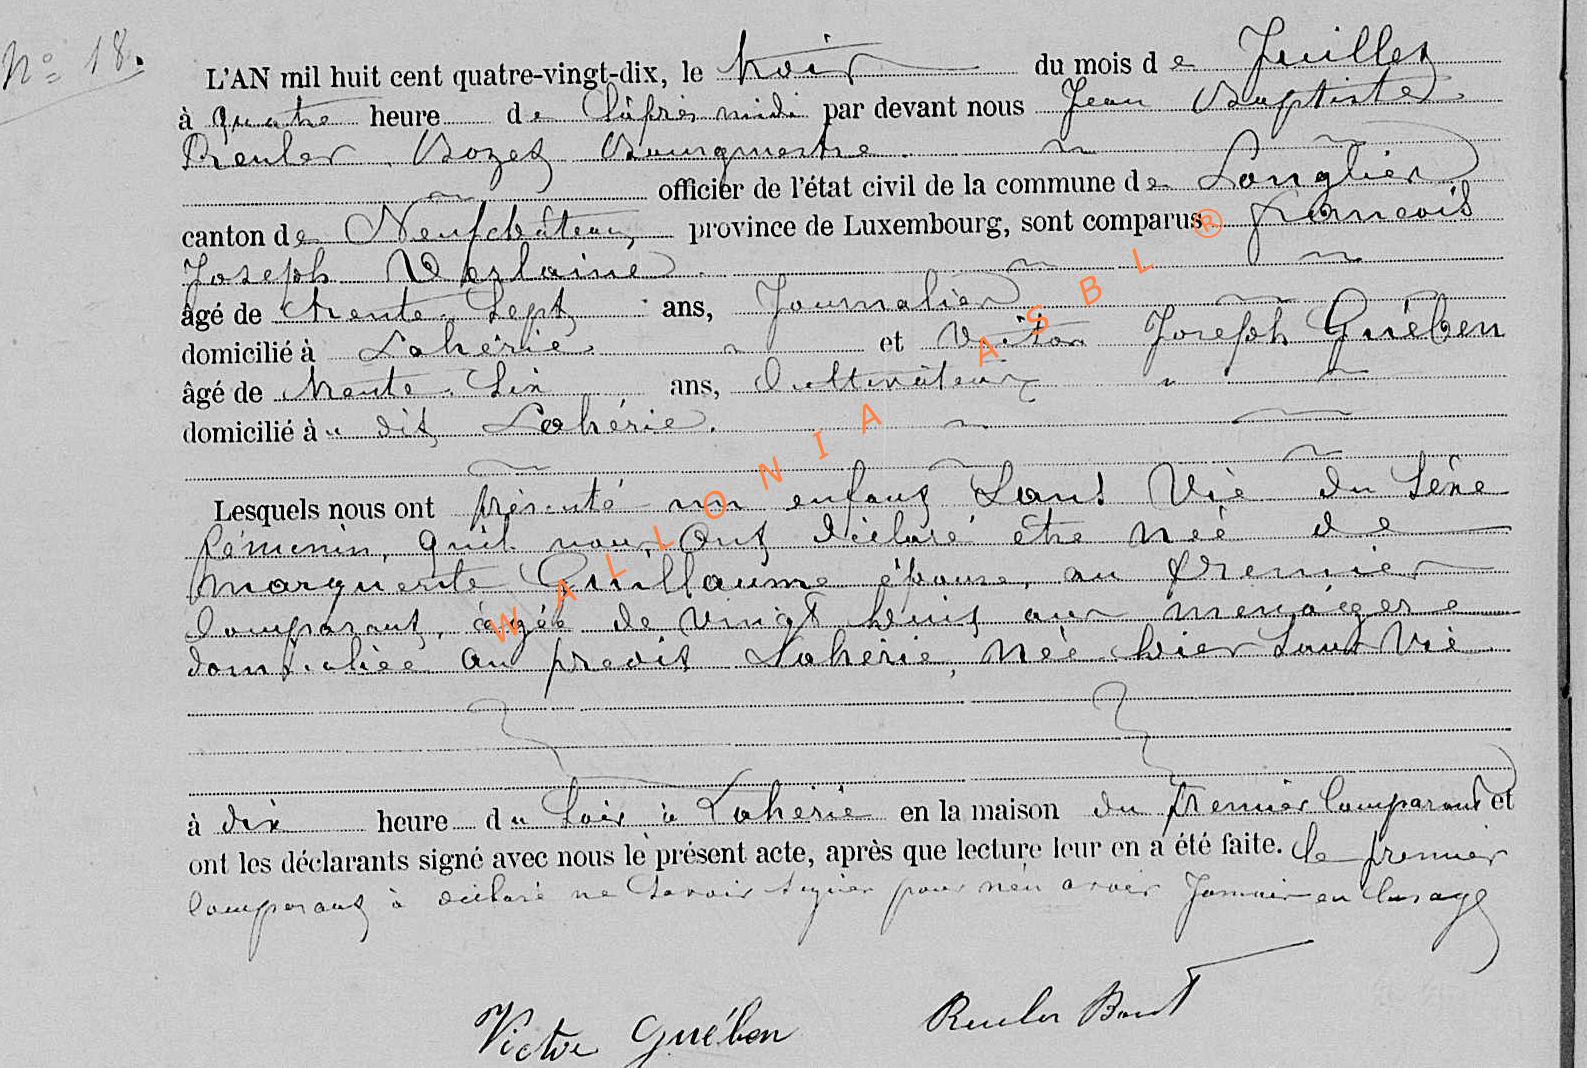 N° 18.
L'AN mil huit cent quatre-vingt-dix, le trois du mois de Juillet
à quatre heure de l'après midi par devant nous Jean Baptiste
Reuler Bozet Bourgmestre.
officier de l'état civil de la commune de Longlier
canton de Neufchâteau, province de Luxembourg, sont comparus François
Joseph Verlaine.
âgé de trente-sept ans, Journalier
domicilié à Lahérie et Victor Joseph Guében
âgé de trente-six ans, Cultivateur
domicilié à u dit Lahérie.
Lesquels nous ont présenté un enfant Sans Vie du Sexe
féminin, qu'il nous ont déclaré être née de
Marguerite Guillaume épouse, au premier
Comparant, âgée de vingt huit ans menágere
domiciliée au predit Lahérie, née hier Sans Vie
à dix heure du Soir à Lahérie en la maison du premier Comparant et
ont les déclarants signé avec nous le présent acte, après que lecture leur en a été faite. le premier
Comparant à déclaré ne Savoir signer pour n'en avoir Jamais eu l'usage
Victor Guében Reuler Bozet
WALLONIA ASBL ®